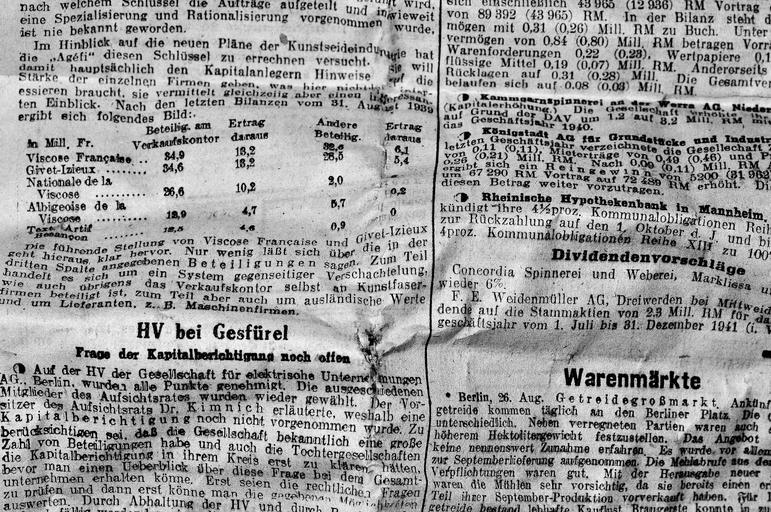 nach welchem Schlüssel die Aufträge aufgeteilt und inwieweit
eine Spezialisierung und Rationalisierung vorgenommen wurde,
ist nie bekannt geworden.
Im Hinblick auf die neuen Pläne der Kunstseideindustrie hat
die „Agéfi" diesen Schlüssel zu errechnen versucht. Sie will
damit hauptsächlich den Kapitalanlegern Hinweise auf die
Stärke der einzelnen Firmen geben, was hier nicht
essieren braucht, sie vermittelt gleichzeitig aber einen interessan-
ten Einblick. Nach den letzten Bilanzen vom 31. August 1939
ergibt sich folgendes Bild:
Beteilig. am Ertrag Andere Ertrag
in Mill. Fr. Verkaufskontor daraus Beteilig. daraus
Viscose Française .. 34,9 13,2 32,6 6,1
Givet-Izieux ........ 34,6 13,2 28,5 5,4
Nationale de la
Viscose ........ 26,6 10,2 2,0 0,2
Albigeoise de la
Viscose ........ 12,9 4,7 5,7 0
Text. Artif.
Besançon ........ 12,5 4,6 0,9
Die führende Stellung von Viscose Française und Givet-Izieux
geht hieraus klar hervor. Nur wenig läßt sich über die in der
dritten Spalte angegebenen Beteiligungen sagen. Zum Teil
handelt es sich um ein System gegenseitiger Verschachtelung,
wie auch übrigens das Verkaufskontor selbst an Kunstfaser-
firmen beteiligt ist, zum Teil aber auch um ausländische Werte
und um Lieferanten, z. B. Maschinenfirmen.
HV bei Gesfürel
Frage der Kapitalberichtigung noch offen
Auf der HV der Gesellschaft für elektrische Unternehmungen
AG., Berlin, wurden alle Punkte genehmigt. Die ausgeschiedenen
Mitglieder des Aufsichtsrates wurden wieder gewählt. Der Vor-
sitzer des Aufsichtsrats Dr. Kimnich erläuterte, weshalb eine
Kapitalberichtigung noch nicht vorgenommen wurde. Zu
berücksichtigen sei, daß die Gesellschaft bekanntlich eine große
Zahl von Beteiligungen habe und auch die Tochtergesellschaften
die Kapitalberichtigung in ihrem Kreis erst zu klären hätten,
bevor man einen Ueberblick über diese Frage bei dem Gesamt-
unternehmen erhalten könne. Erst seien die rechtlichen Fragen
zu prüfen und dann erst könne man die gegebenen Möglichkeiten
auswerten. Durch Abhaltung der HV und durch
sich einschließlich 43 965 (12 936) RM Vortrag
von 89 392 (43 965) RM. In der Bilanz steht
mögen mit 0,31 (0,26) Mill. RM zu Buch. Unter
vermögen von 0,84 (0,80) Mill. RM betragen Vorrä
Warenforderungen 0,22 (0,29), Wertpapiere 0,1
flüssige Mittel 0,19 (0,07) Mill. RM. Andererseits
Rücklagen auf 0,31 (0,28) Mill. RM. Die Gesamtver
belaufen sich auf 0,08 (0,03) Mill. RM.
Kammgarnspinnerei an der Werra AG, Nieder
(Kapitalerhöhung.) Die Gesellschaft erhöhte ihr
auf Grund der DAV um 1,2 auf 3,2 Mill. RM
das Geschäftsjahr 1940.
Königstadt AG für Grundstücke und Industri
letzten Geschäftsjahr verzeichnete die Gesellschaft
von 0,11 (0,11), Mieterträge von 0,49 (0,46) und
0,26 (0,21) Mill. RM. Nach 0,09 (0,11) Mill. RM
ergibt sich ein Reingewinn von 5200 (31 963
um 67 290 RM Vortrag auf 72 489 RM erhöht. Di
diesen Betrag weiter vorzutragen.
Rheinische Hypothekenbank in Mannheim,
kündigt ihre 4½proz. Kommunalobligationen Reih
zur Rückzahlung auf den 1. Oktober d. J. und bi
4proz. Kommunalobligationen Reihe XIII zu 100
Dividendenvorschläge
Concordia Spinnerei und Weberei, Marklissa
wieder 6%.
F. E. Weidenmüller AG, Dreiwerden bei Mittweid
dende auf die Stammaktien von 2,3 Mill. RM für da
geschäftsjahr vom 1. Juli bis 31. Dezember 1941 (i.
Warenmärkte
Berlin, 26. Aug. Getreidegroßmarkt. Ankünf
getreide kommen täglich an den Berliner Platz. Die
unterschiedlich. Neben verregneten Partien waren auch
höherem Hektolitergewicht festzustellen. Das Angebot
keine nennenswert Zunahme erfahren. Es wurde vor allem
zur Septemberlieferung aufgenommen. Die Mehlabrufe aus den
Verpflichtungen waren gut. Mit der Herausgabe neuer
waren die Mühlen sehr vorsichtig, da sie bereits einen er
Teil ihrer September-Produktion vorverkauft haben. Für
getreide bestand lebhafte Kauflust. Braugerste konnte in